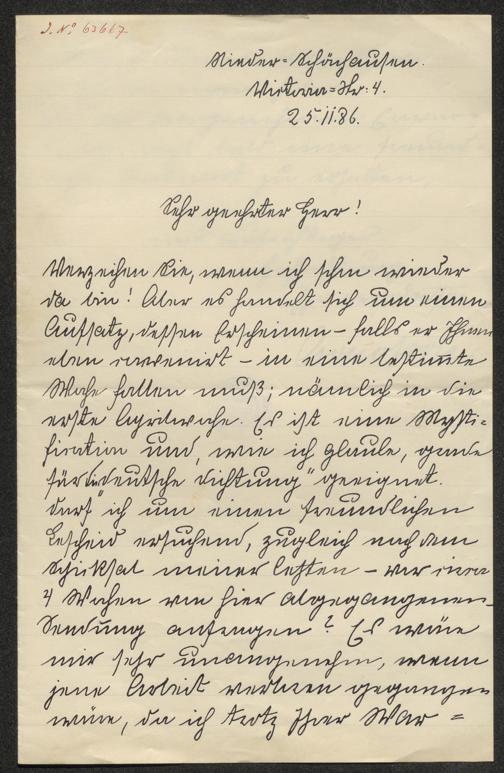 J. No 63667
Nieder-Schönhausen.
Viktoria-Str: 4.
25.II.86.
Sehr geehrter Herr!
Verzeihen Sie, wenn ich schon wieder
da bin! Aber es handelt sich um einen
Aufsatz, dessen Erscheinen – falls er Ihnen
eben convenirt – in eine bestimmte
Woche fallen muß; nämlich in die
erste Aprilwoche. Es ist eine Mysti-
fication und, wie ich glaube, grade
für die „deutsche Dichtung" geeignet.
Darf ich um einen freundlichen
Bescheid ersuchend, zugleich nach dem
Schicksal meiner letzten – vor circa
4 Wochen von hier abgegangenen –
Sendung anfragen? Es wäre
mir sehr unangenehm, wenn
jene Arbeit verloren gegangen
wäre, da ich trotz Ihrer War-